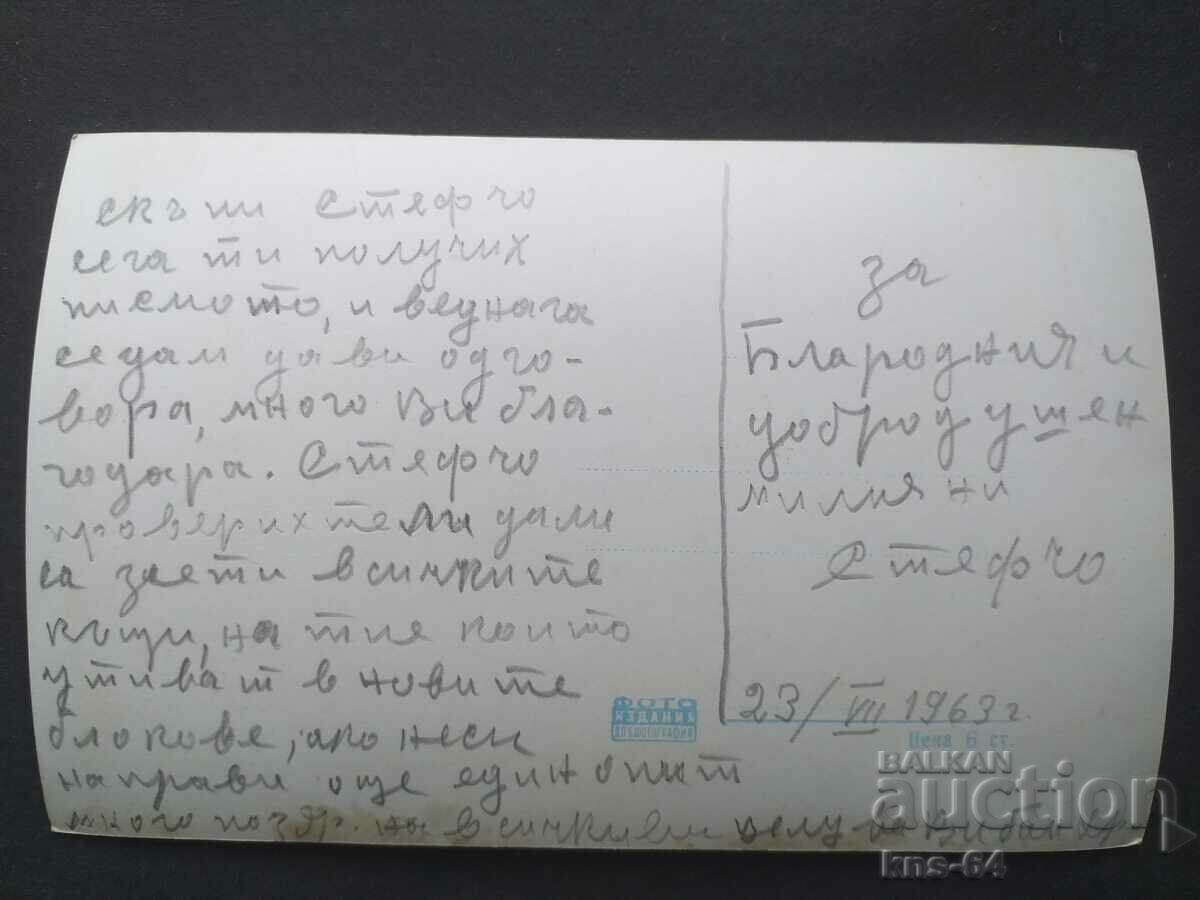 скъпи Стефчо
сега ти получих
писмото, и веднага
седам да ви одго-
вора, много Ви бла-
годара. Стефчо
проверих те ли дали
са заети всичките
къщи, на тия които
утиват в новите
блокове, ако неси
направи още един опит
много поздр. на всички ви целу
за
Благородния и
добродушен
мил
Стефчо
23/VII 1963 г.
ФОТО
ИЗДАНИЯ
ДП БЪЛГ. ФОТОГРАФИЯ
Цена 6 ст.
BALKAN
auction
kns-64